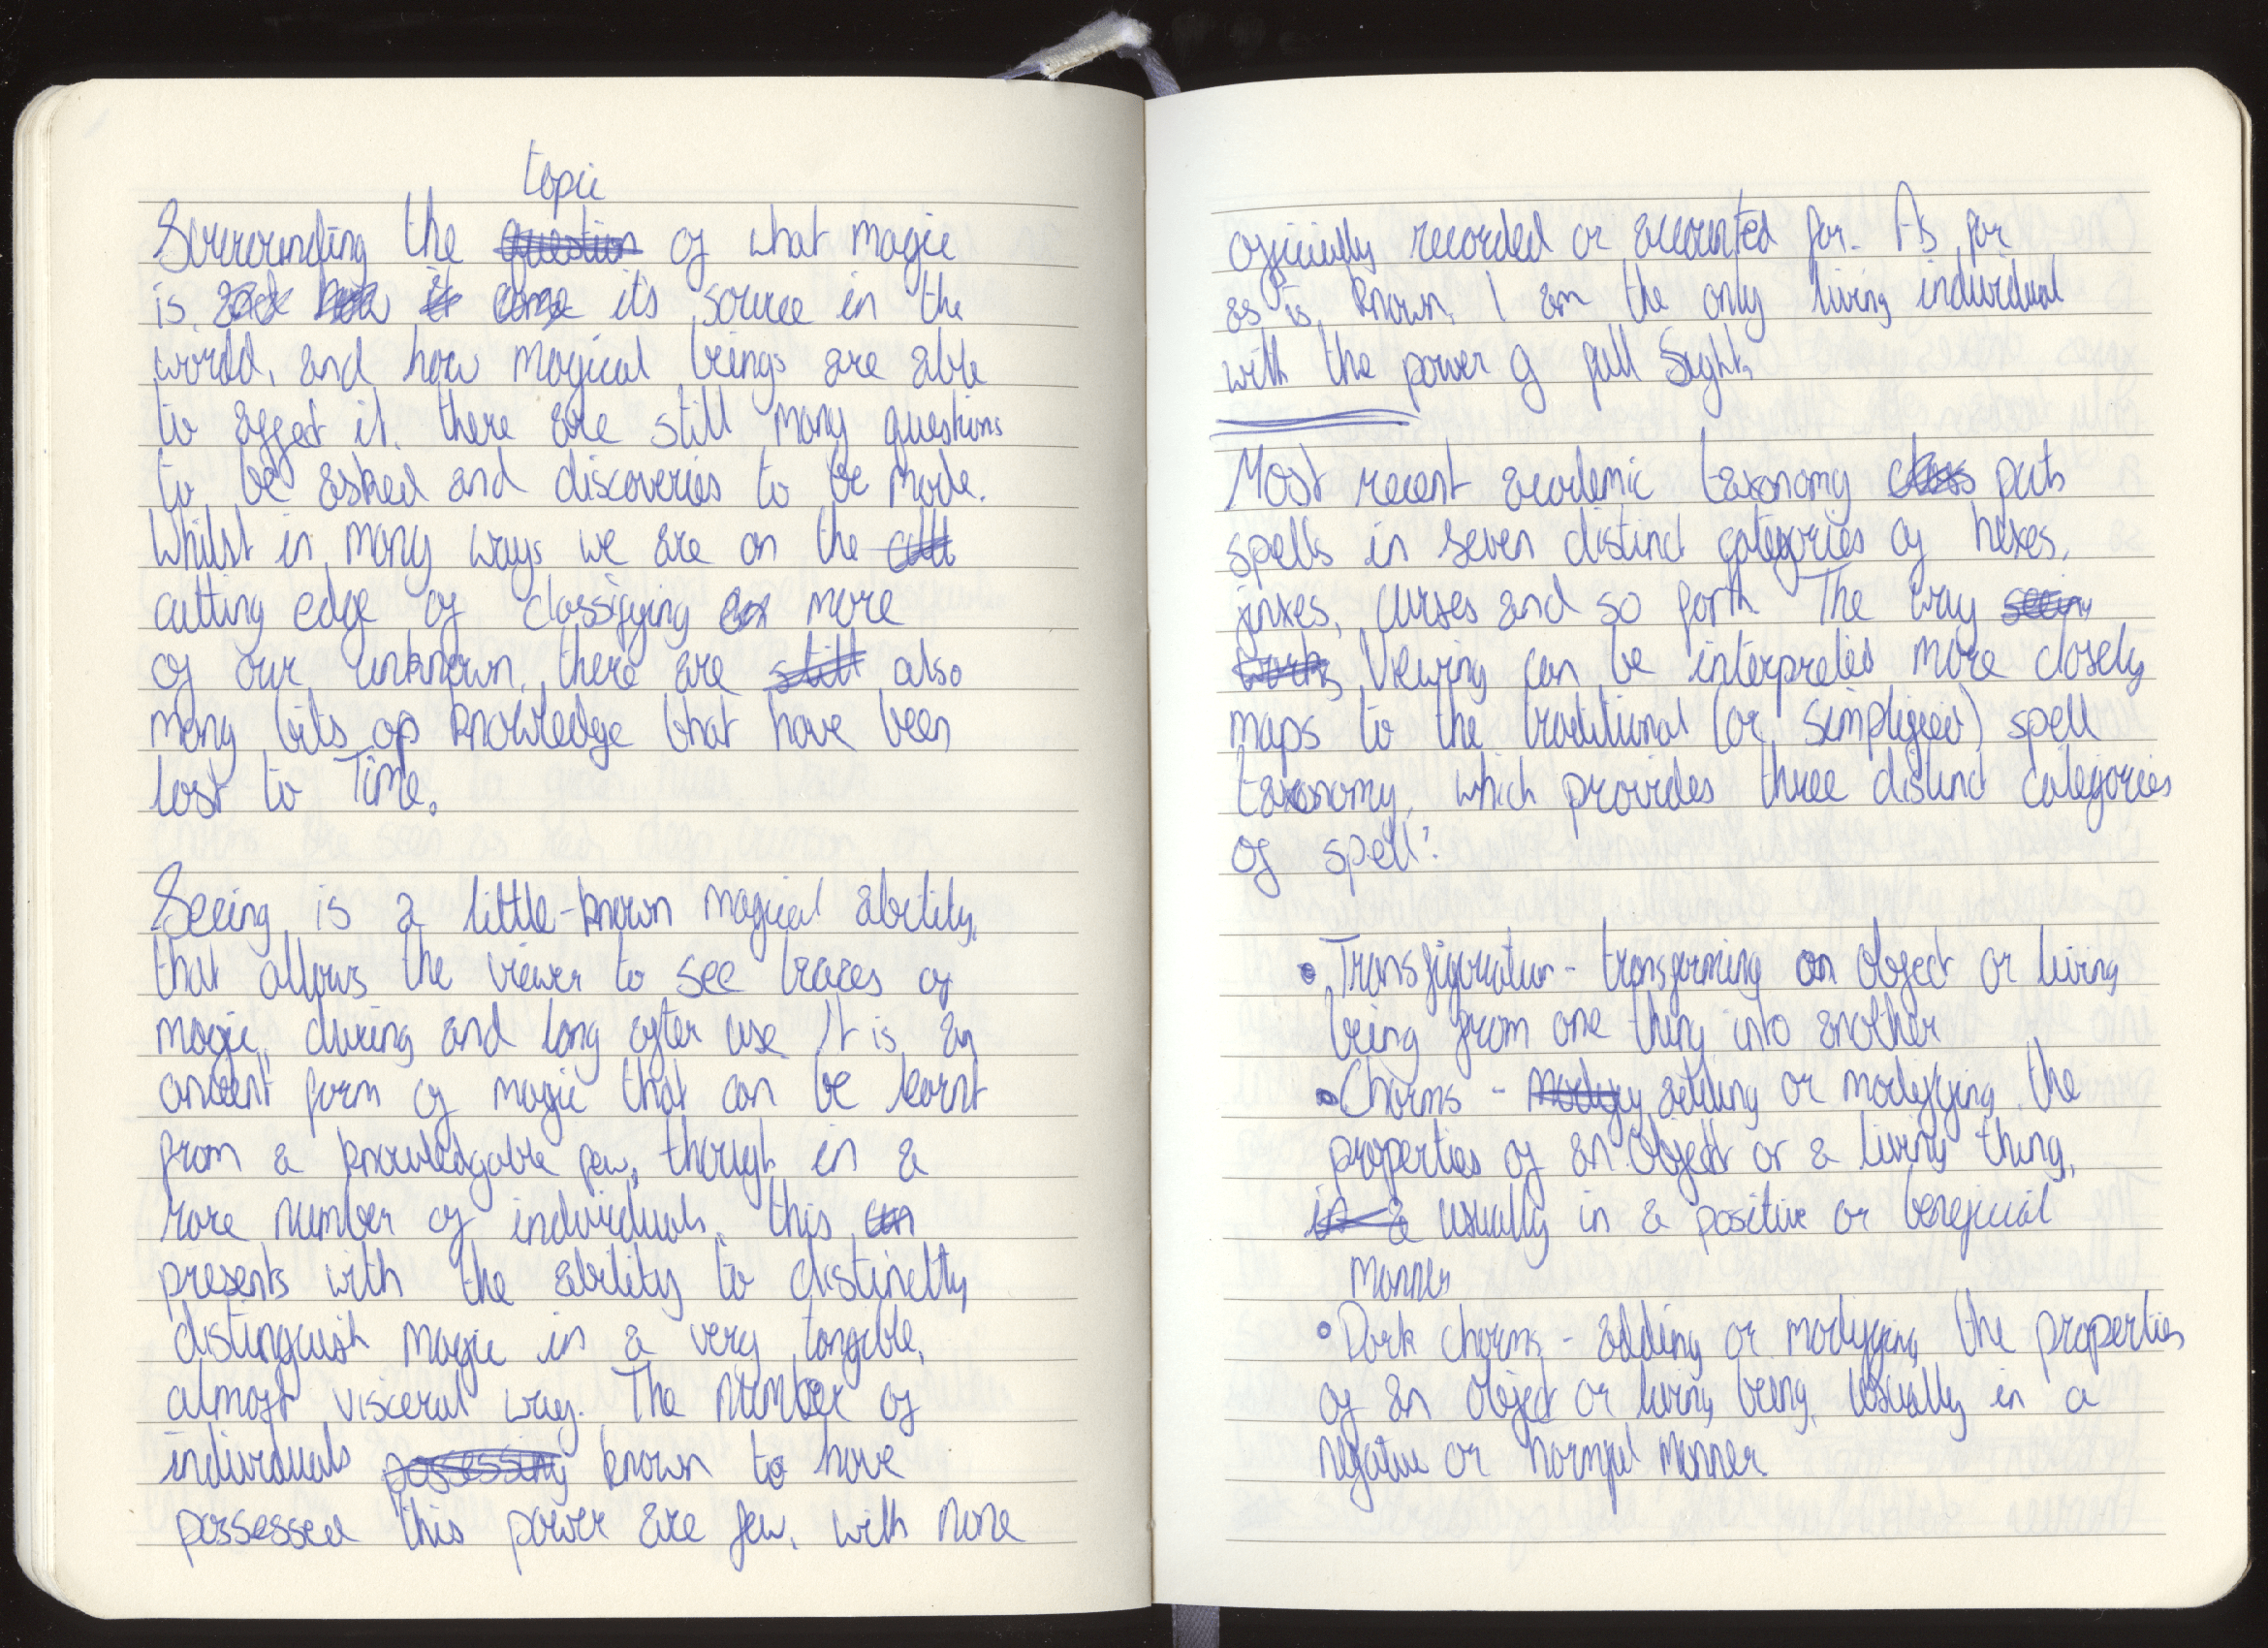 topic
Surrounding the question of what magic
is and how it come its source in the
world, and how magical beings are able
to affect it. there are still many questions
to be asked and discoveries to be made.
Whilst in many ways we are on the cutt
cutting edge of classifying more
of our unknown, there are still also
many bits of knowledge that have been
lost to Time.
Seeing is a little-known magical ability,
that allows the viewer to see traces of
magic, during and long after use. It is an
ancient form of magic that can be learnt
from a knowledgable few, though in a
rare number of individuals, this can
presents with the ability to distinctly
distinguish magic in a very tangible,
almost visceral way. The number of
individuals possessing known to have
possessed this power are few, with none
officially recorded or accounted for. As far
as is known, I am the only living individual
with the power of full Sight.
Most recent academic taxonomy class puts
spells in seven distinct categories of hexes,
jinxes, curses and so forth. The way seeing
works Viewing can be interpreted more closely
maps to the traditional (or simplified) spell
taxonomy, which provides three distinct categories
of spell:
• Transfiguration - transforming an object or living
being from one thing into another
• Charms - modify adding or modifying the
properties of an object or a living thing,
in a usually in a positive or beneficial
manner
• Dark charms - adding or modifying the properties
of an object or living being, usually in a
negative or harmful manner.